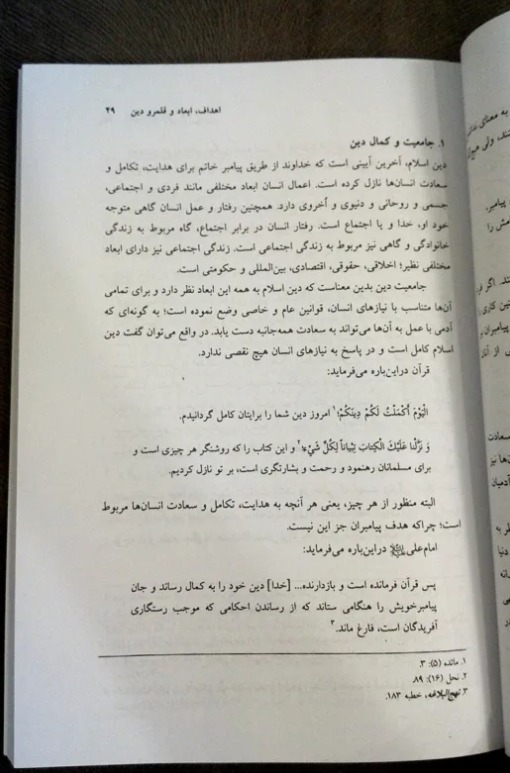 اهداف، ابعاد و قلمرو دین ۲۹
۱. جامعیت و کمال دین
دین اسلام، آخرین آیینی است که خداوند از طریق پیامبر خاتم برای هدایت، تکامل و
سعادت انسان‌ها نازل کرده است. اعمال انسان ابعاد مختلفی مانند فردی و اجتماعی،
جسمی و روحانی و دنیوی و اُخروی دارد. همچنین رفتار و عمل انسان گاهی متوجه
خود او، خدا و یا اجتماع است. رفتار انسان در برابر اجتماع، گاه مربوط به زندگی
خانوادگی و گاهی نیز مربوط به زندگی اجتماعی است. زندگی اجتماعی نیز دارای ابعاد
مختلفی نظیر؛ اخلاقی، حقوقی، اقتصادی، بین‌المللی و حکومتی است.
جامعیت دین بدین معناست که دین اسلام به همه این ابعاد نظر دارد و برای تمامی
آن‌ها متناسب با نیازهای انسان، قوانین عام و خاصی وضع نموده است؛ به گونه‌ای که
آدمی با عمل به آن‌ها می‌تواند به سعادت همه‌جانبه دست یابد. در واقع می‌توان گفت دین
اسلام کامل است و در پاسخ به نیازهای انسان هیچ نقصی ندارد.
قرآن دراین‌باره می‌فرماید:
الْیَوْمَ أَکْمَلْتُ لَکُمْ دِینَکُمْ؛۱ امروز دین شما را برایتان کامل گردانیدم.
وَ نَزَّلْنا عَلَیْکَ الْکِتابَ تِبْیاناً لِکُلِّ شَیْءٍ؛۲ و این کتاب را که روشنگر هر چیزی است و
برای مسلمانان رهنمود و رحمت و بشارتگری است، بر تو نازل کردیم.
البته منظور از هر چیز، یعنی هر آنچه به هدایت، تکامل و سعادت انسان‌ها مربوط
است؛ چراکه هدف پیامبران جز این نیست.
امام‌علی علیه‌السلام دراین‌باره می‌فرماید:
پس قرآن فرمانده است و بازدارنده... [خدا] دین خود را به کمال رساند و جان
پیامبرخویش را هنگامی ستاند که از رساندن احکامی که موجب رستگاری
آفریدگان است، فارغ ماند.۳
۱. مائده (۵): ۳.
۲. نحل (۱۶): ۸۹.
۳. نهج‌البلاغه، خطبه ۱۸۳.
به معنای
پیامبر.
سعادت
آدمیان
دنیا